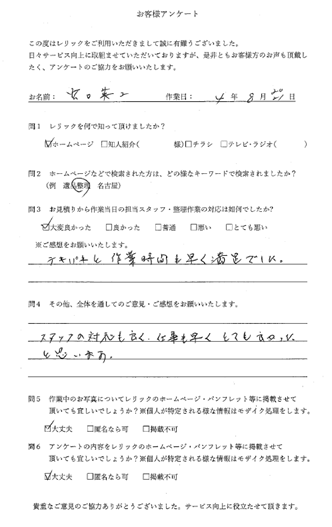 お客様アンケート
この度はレリックをご利用いただきまして誠に有難うございました。
日々サービス向上に取組ませていただいておりますが、是非ともお客様方のお声も頂戴し
たく、アンケートのご協力をお願いいたします。
お名前： 作業日： 4 年 8 月 日
問1 レリックを何で知って頂けましたか？
☑ホームページ □知人紹介( 様)□チラシ □テレビ・ラジオ( )
問2 ホームページなどで検索された方は、どの様なキーワードで検索されましたか？
(例 遺品整理 名古屋)
問3 お見積りから作業当日の担当スタッフ・整理作業の対応は如何でしたか？
☑大変良かった □良かった □普通 □悪い □とても悪い
※ご感想をお願いいたします。
テキパキと作業時間も早く満足でした。
問4 その他、全体を通してのご意見・ご感想をお願いいたします。
スタッフの対応も良く、仕事も早くとてもよかった
と思います。
問5 作業中のお写真についてレリックのホームページ・パンフレット等に掲載させて
頂いても宜しいでしょうか？※個人が特定される様な情報はモザイク処理をします。
☑大丈夫 □匿名なら可 □掲載不可
問6 アンケートの内容をレリックのホームページ・パンフレット等に掲載させて
頂いても宜しいでしょうか？※個人が特定される様な情報はモザイク処理をします。
☑大丈夫 □匿名なら可 □掲載不可
貴重なご意見のご協力ありがとうございました。サービス向上に役立たせて頂きます。